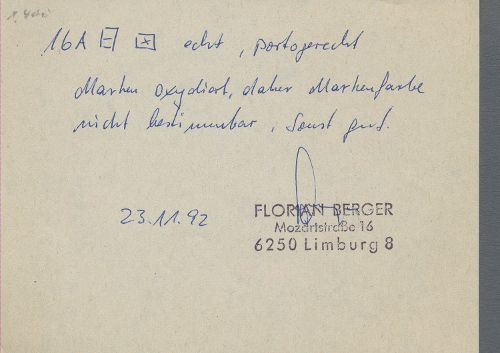 16A echt, portogerecht
Marken oxydiert, daher Markenfarbe
nicht bestimmbar, sonst gut.
23.11.92
FLORIAN BERGER
Mozartstraße 16
6250 Limburg 8